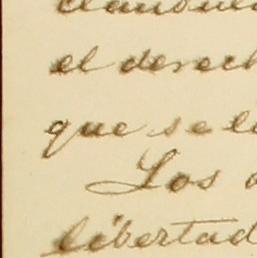 el derech
que se le
Los
libertad